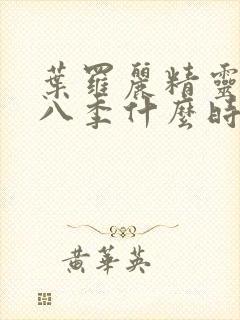 葉羅麗精靈
八季什麼時
黄華英